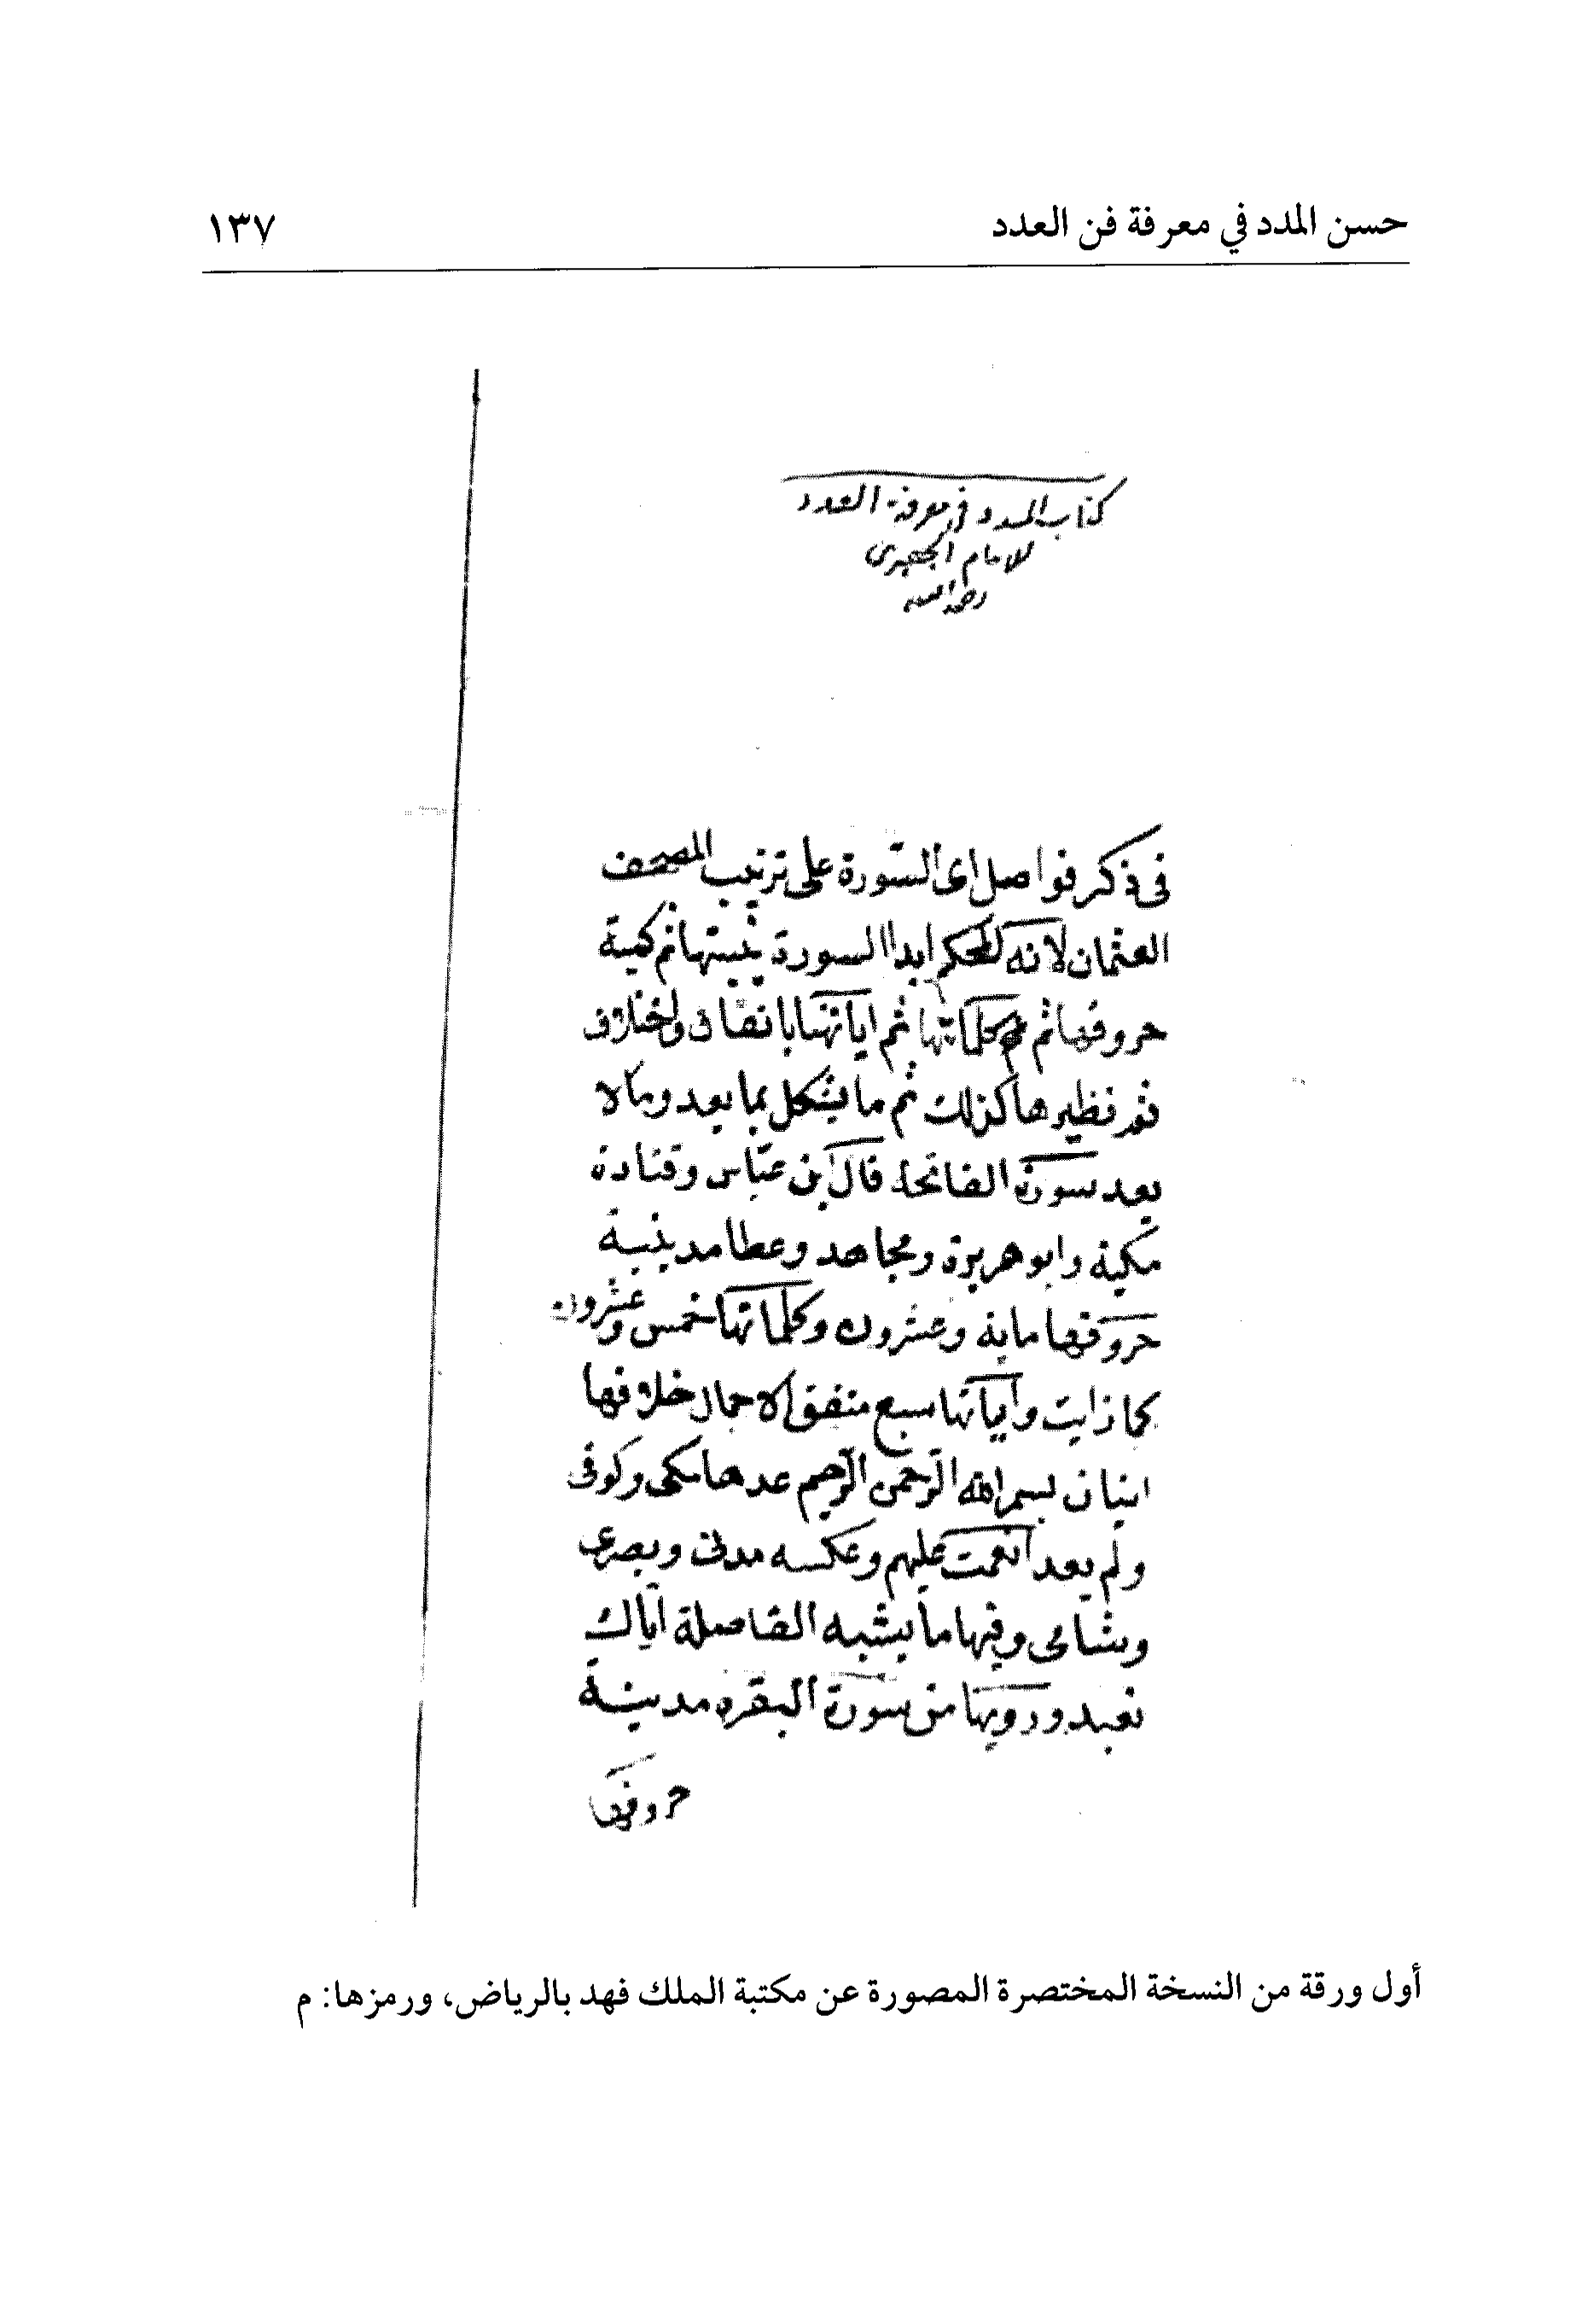 حسن المدد في معرفة فن العدد ١٣٧
كتاب المدد في معرفة العدد
للامام الجعبرى
رحمه الله
فى ذكر فواصل اى السّورة على ترتيب المصحف
العثمان لانه ابدا السورة ثم كمية
حروفها ثم كلماتها ثم اياتها باتفاق واختلاف
ثم نظيرها كذلك ثم ما يشكل بما يعد وما لا
يعد سورة الفاتحة قال ابن عبّاس وقتادة
مكية وابو هريرة ومجاهد وعطا مدينية
حروفها ماية وعشرون وكلماتها خمس وعشرون
كما رايت واياتها سبع متفق الاجمال خلافها
اثنان بسم الله الرّحمن الرّحيم عدها مكى وكوفى
ولم يعد انعمت عليهم وعكسه مدنى وبصرى
وشامى وفيها ما يشبه الفاصلة ايّاك
نعبد ورويها من سورة البقره مدينية
حروفها
أول ورقة من النسخة المختصرة المصورة عن مكتبة الملك فهد بالرياض، ورمزها: م